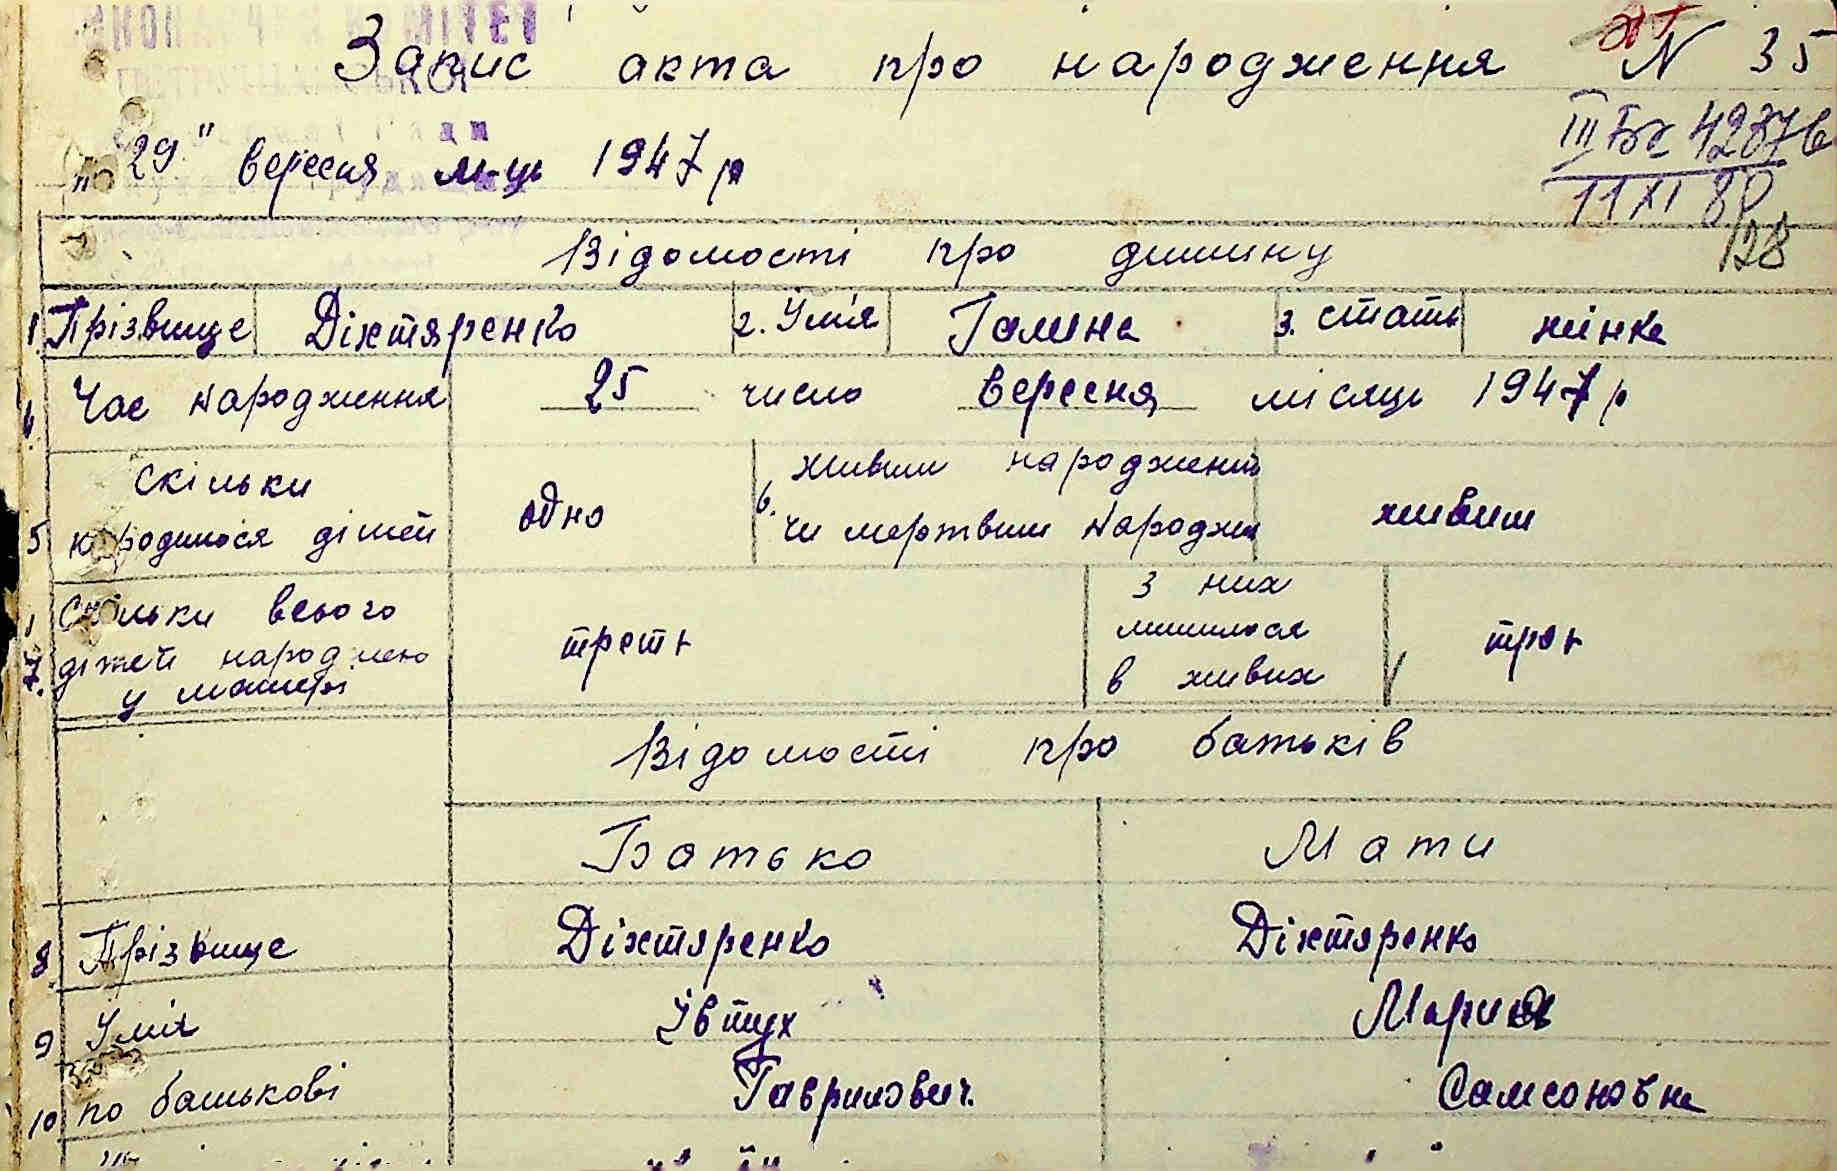 Запис акта про народження N 35
"29" вересня м-ць 1947 р
11 XI 80
128
Відомості про дитину
1. Прізвище Діхтяренко 2. Імʼя Галина 3. стать жінка
Час народження 25 число вересня місяць 1947 р
скільки
народилося дітей
5 одно
6. живим народжен
чи мертвим народжен
живим
Скільки всього
дітей народжено
у матері
7. третє
з них
лишилося
в живих
троє
Відомості про батьків
Батько Мати
8 Прізвище Діхтяренко Діхтяренко
9 Імʼя Івтух Мария
10 по батькові Гаврилович. Самсоновна